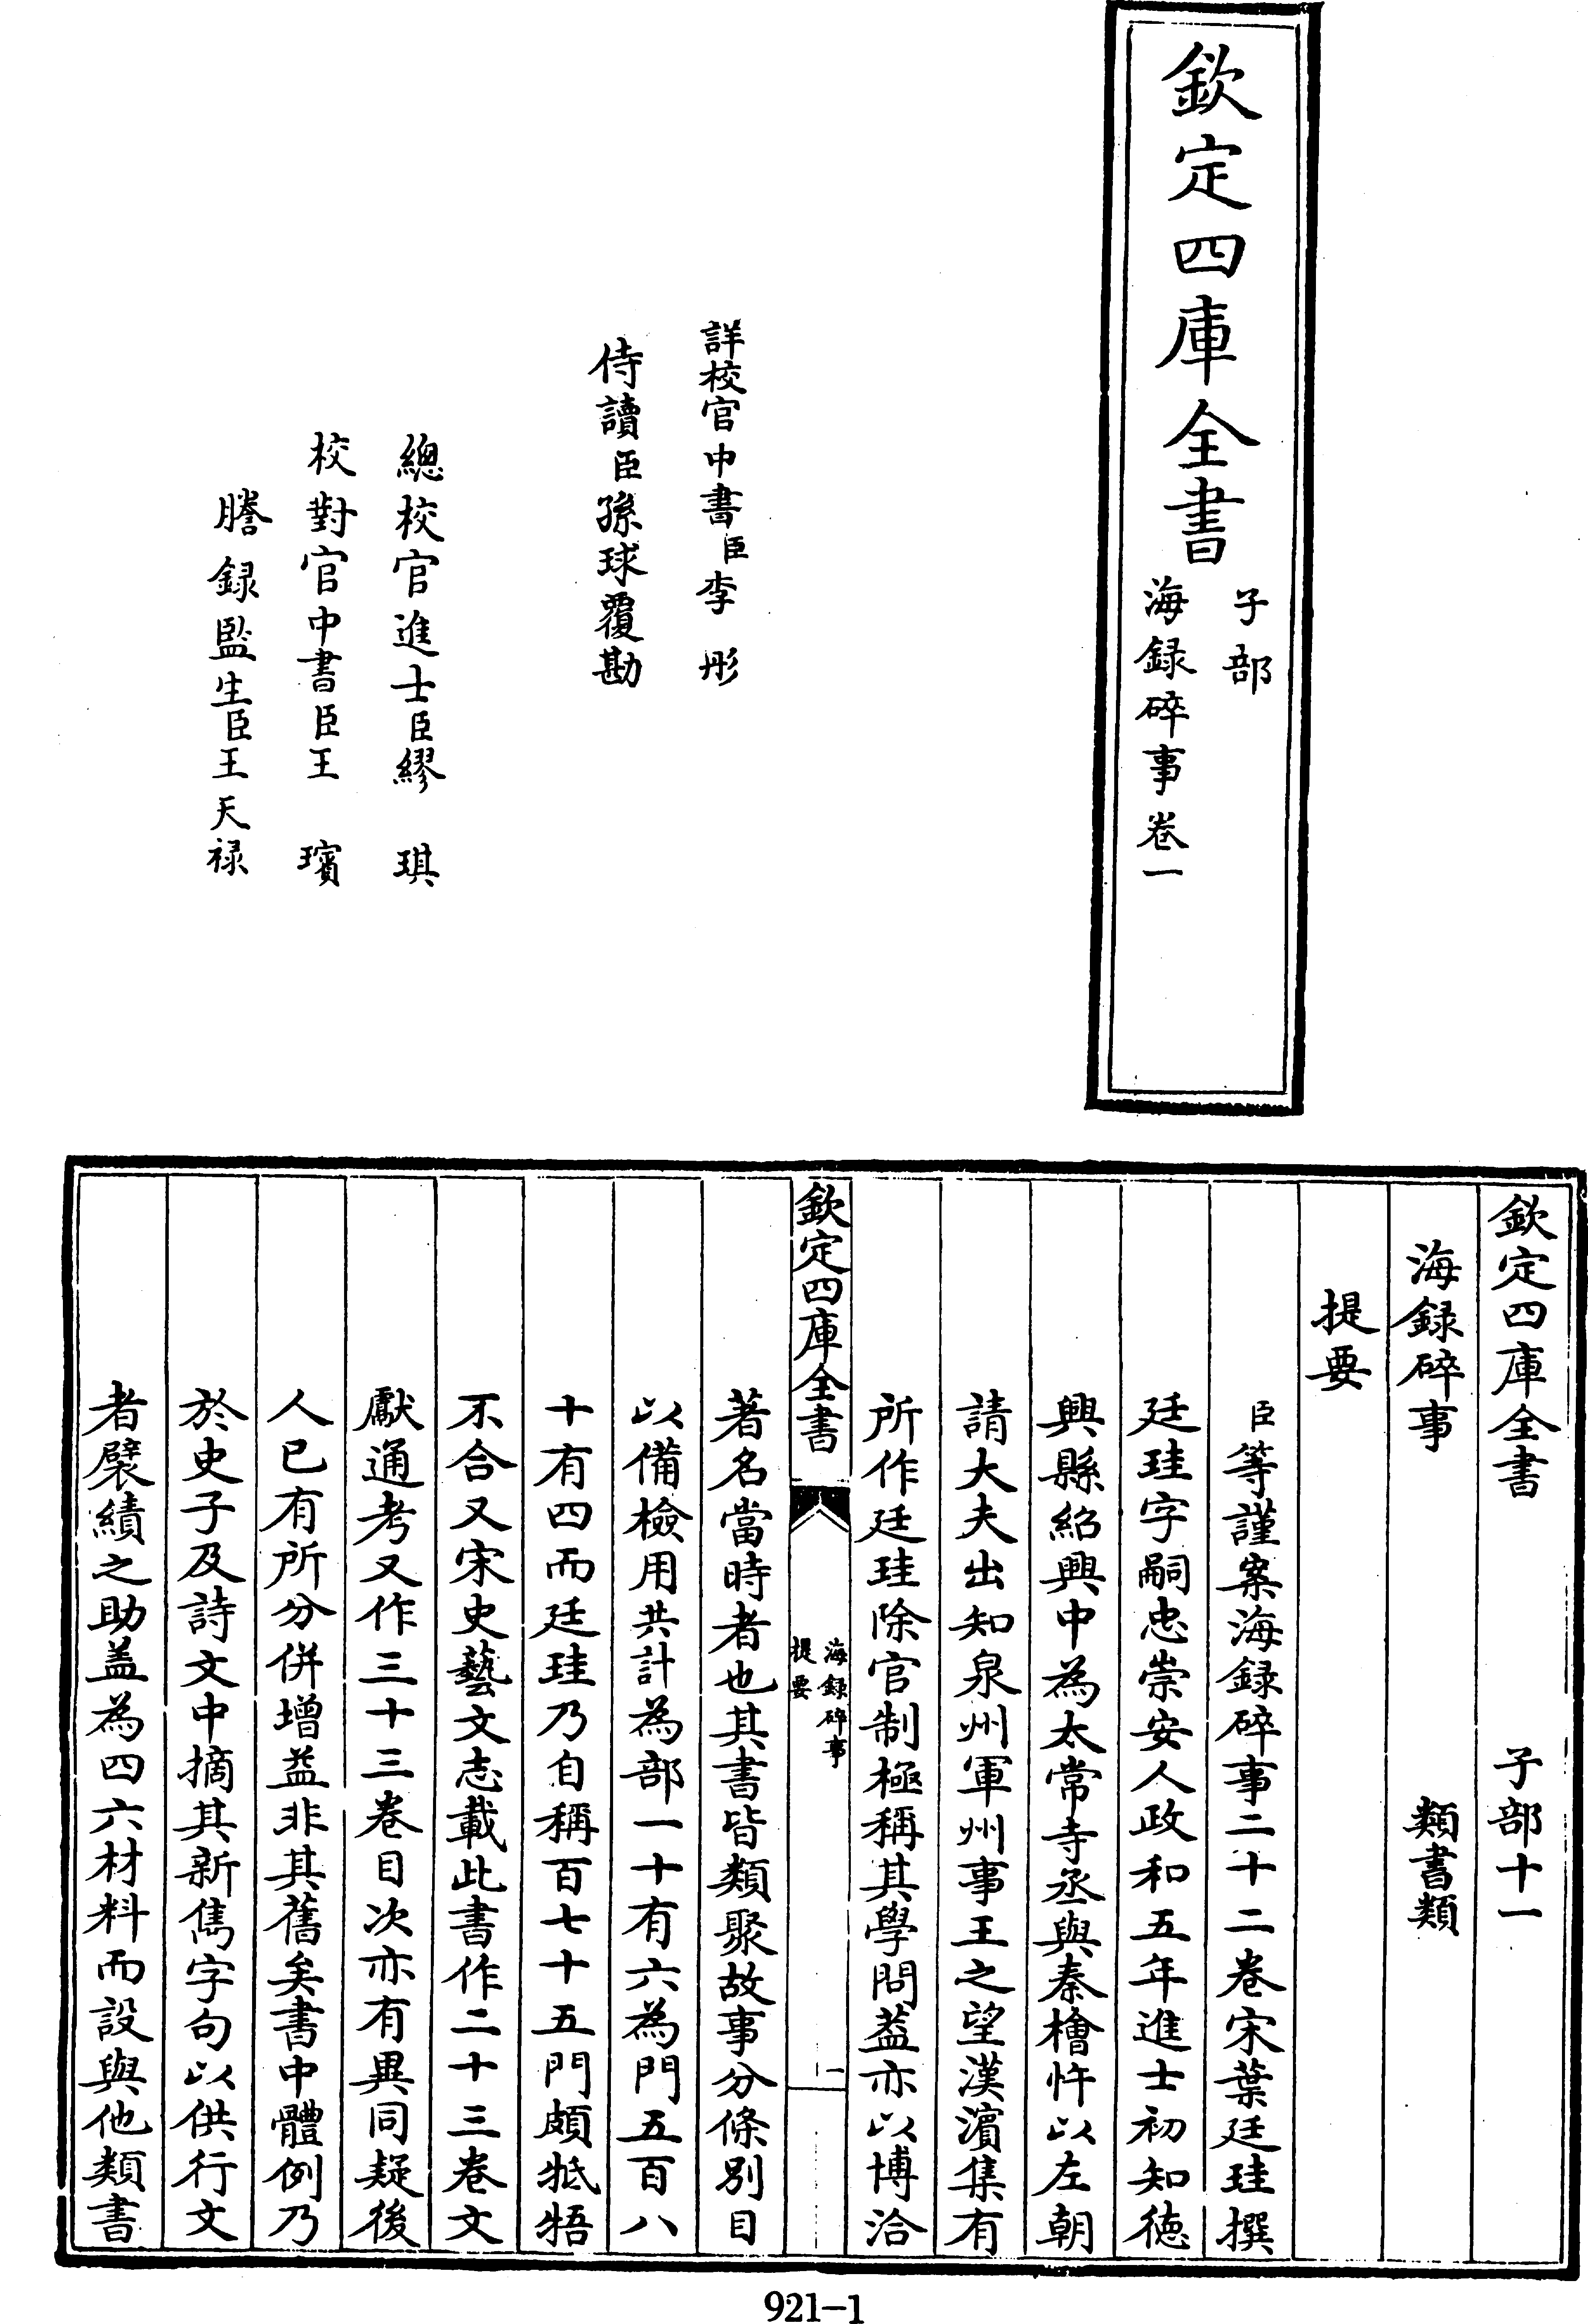 欽定四庫全書
子部
海録碎事卷一
詳校官中書臣李彤
侍讀臣孫球覆勘
總校官進士臣繆琪
校對官中書臣王璸
謄録監生臣王天禄
欽定四庫全書 子部十一
海録碎事 類書類
提要
臣等謹案海録碎事二十二卷宋葉廷珪撰
廷珪字嗣忠崇安人政和五年進士初知徳
興縣紹興中為太常寺丞與秦檜忤以左朝
請大夫出知泉州軍州事王之望漢濵集有
所作廷珪除官制極稱其學問葢亦以博洽
欽定四庫全書
海録碎事
提要
一
著名當時者也其書皆類聚故事分條别目
以備檢用共計為部一十有六為門五百八
十有四而廷珪乃自稱百七十五門頗牴牾
不合又宋史藝文志載此書作二十三卷文
獻通考又作三十三卷目次亦有異同疑後
人已有所分併增益非其舊矣書中體例乃
於史子及詩文中摘其新雋字句以供行文
者襞績之助盖為四六材料而設與他類書
921-1